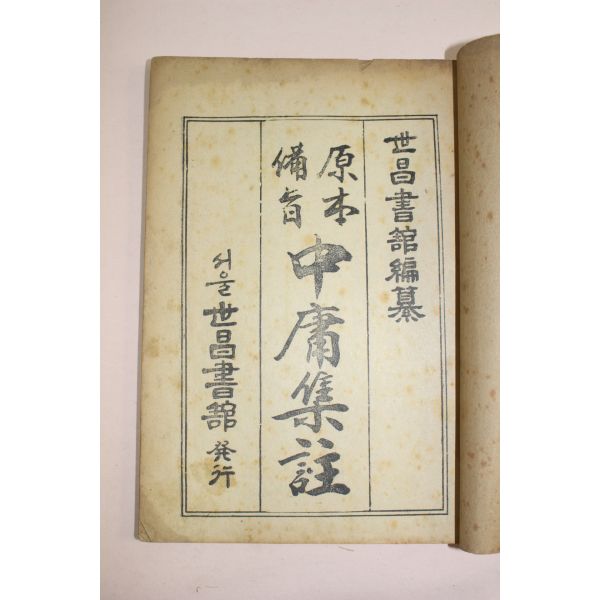 世昌書舘編纂
原本
備旨
中庸集註
서울 世昌書舘 発行